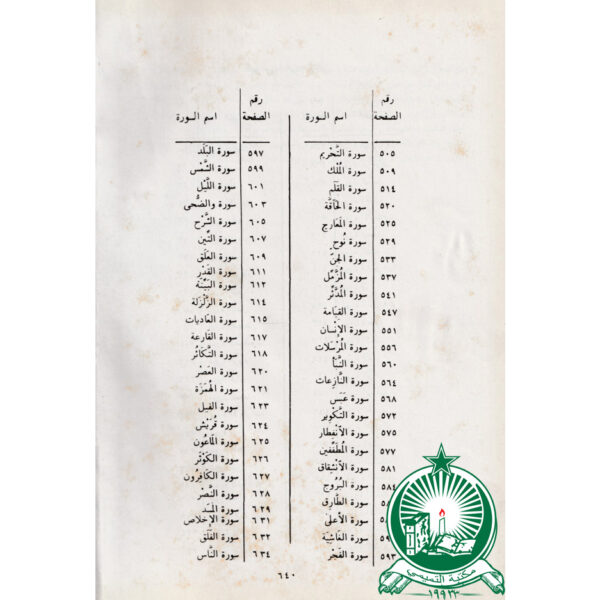 رقم
الصفحة اسم الورة
٥٠٥ سورة التَّحْرِيم
٥٠٩ سورة المُلْك
٥١٤ سورة القَلَم
٥٢٠ سورة الحَاقَّة
٥٢٥ سورة المَعَارِج
٥٢٩ سورة نُوح
٥٣٣ سورة الجِنّ
٥٣٧ سورة المُزَّمِّل
٥٤١ سورة المُدَّثِّر
٥٤٧ سورة القِيَامة
٥٥١ سورة الإِنْسان
٥٥٦ سورة المُرْسَلات
٥٦٠ سورة النَّبَأ
٥٦٤ سورة النَّازِعات
٥٦٨ سورة عَبَس
٥٧٢ سورة التَّكْوير
٥٧٥ سورة الأنْفِطار
٥٧٧ سورة المُطَفِّفين
٥٨١ سورة الأنْشِقاق
٥٨٤ سورة البُرُوج
سورة الطَّارِق
سورة الأعْلَى
سورة الغَاشِيَة
٥٩٣ سورة الفَجْر
رقم
الصفحة اسم الورة
٥٩٧ سورة البَلَد
٥٩٩ سورة الشَّمْس
٦٠١ سورة اللَّيْل
٦٠٣ سورة والضُّحى
٦٠٥ سورة الشَّرْح
٦٠٧ سورة التِّين
٦٠٩ سورة العَلَق
٦١١ سورة القَدْر
٦١٢ سورة البَيِّنَة
٦١٤ سورة الزَّلْزَلة
٦١٥ سورة العَادِيات
٦١٧ سورة القَارِعة
٦١٨ سورة التَّكَاثُر
٦٢٠ سورة العَصْر
٦٢١ سورة الهُمَزَة
٦٢٣ سورة الفيل
٦٢٤ سورة قُرَيْش
٦٢٥ سورة المَاعُون
٦٢٦ سورة الكَوْثَر
٦٢٧ سورة الكَافِرُون
٦٢٨ سورة النَّصْر
٦٢٩ سورة المَسَد
٦٣١ سورة الإخْلاص
٦٣٢ سورة الفَلَق
٦٣٤ سورة النَّاس
٦٤٠
مكتبة التميمي
١٩٩٣